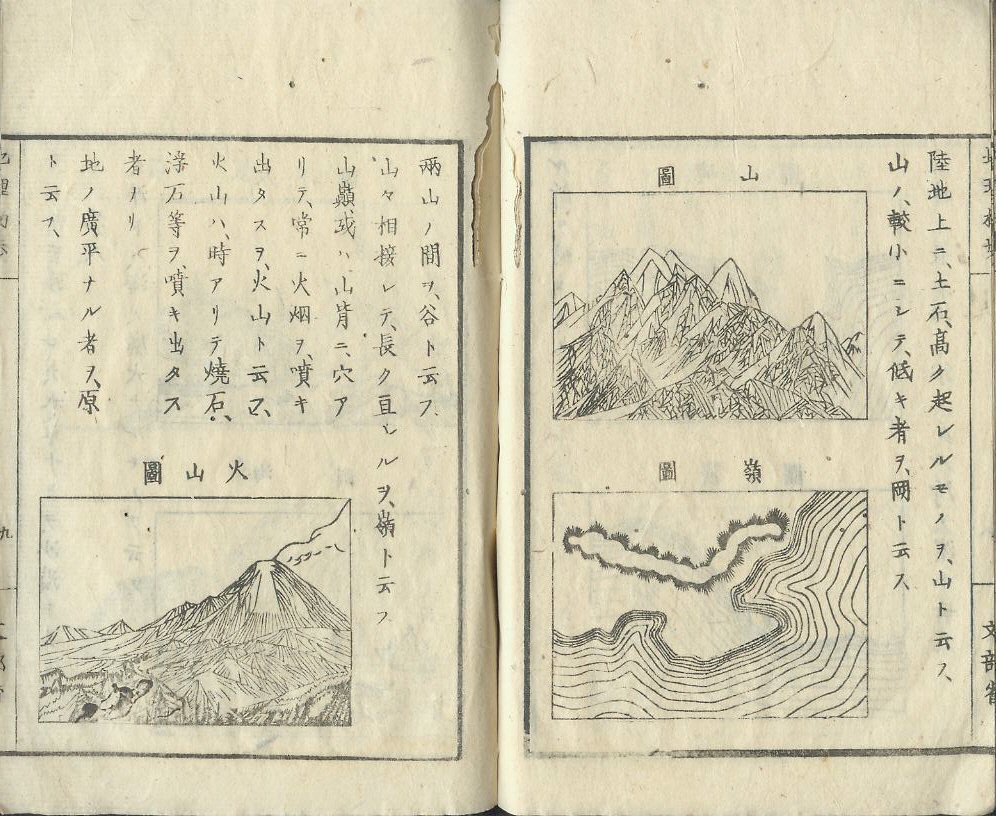 陸地上ニ、土石、高ク起レルモノヲ、山ト云フ、
山ノ、較小ニシテ、低キ者ヲ、岡ト云フ
山圖
嶺圖
文部省
兩山ノ間ヲ、谷ト云フ
山々相接レテ、長ク亘レルヲ、嶺ト云フ
山巓或ハ、山脊ニ、穴ア
リテ、常ニ火烟ヲ、噴キ
出タスヲ、火山ト云フ、
火山ハ、時アリテ燒石、
浮石等ヲ、噴キ出タス
者ノリ
地ノ廣平ナル者ヲ、原
ト云フ、
火山圖
九